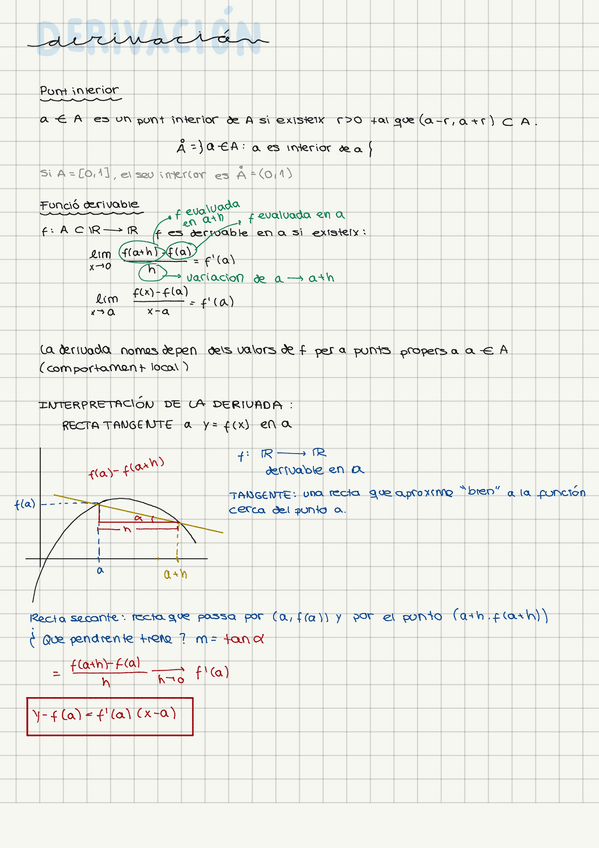 DERIVACIÓN
derivación
Punt interior
a ∈ A es un punt interior de A si existeix r>0 tal que (a-r, a+r) ⊂ A.
Å = }a ∈ A : a es interior de a {
Si A = [0,1], el seu interior es Å = (0,1)
Funció derivable
f evaluada
en a+h
f evaluada en a
f: A ⊂ ℝ → ℝ f es derivable en a si existeix:
lim x→0 (f(a+h) - f(a)) / h = f'(a)
variacion de a → a+h
lim x→a (f(x)-f(a)) / (x-a) = f'(a)
La derivada nomes depen dels valors de f per a punts propers a a ∈ A
(comportament local)
INTERPRETACIÓN DE LA DERIVADA :
RECTA TANGENTE a y = f(x) en a
f(a)-f(a+h)
f(a)
α
h
a
a+h
f: ℝ → ℝ
derivable en a
TANGENTE: una recta que aproxime "bien" a la función
cerca del punto a.
Recta secante: recta que passa por (a, f(a)) y por el punto (a+h, f(a+h))
¿ Que pendrente tiene ? m = tan α
= (f(a+h)-f(a)) / h → h→0 f'(a)
y-f(a) = f'(a) (x-a)